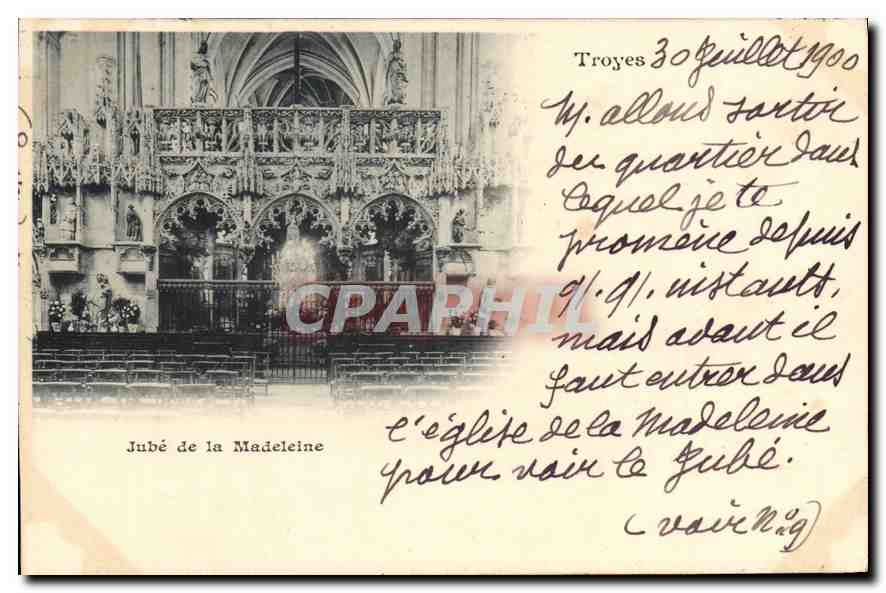 Troyes 30 Juillet 1900
N. allons sortir
du quartier dans
lequel je te
promène depuis
q/. q/. instants,
mais avant il
faut entrer dans
l'église de la Madeleine
pour voir le Jubé.
(voir N° 9)
Jubé de la Madeleine
CPARPHIL